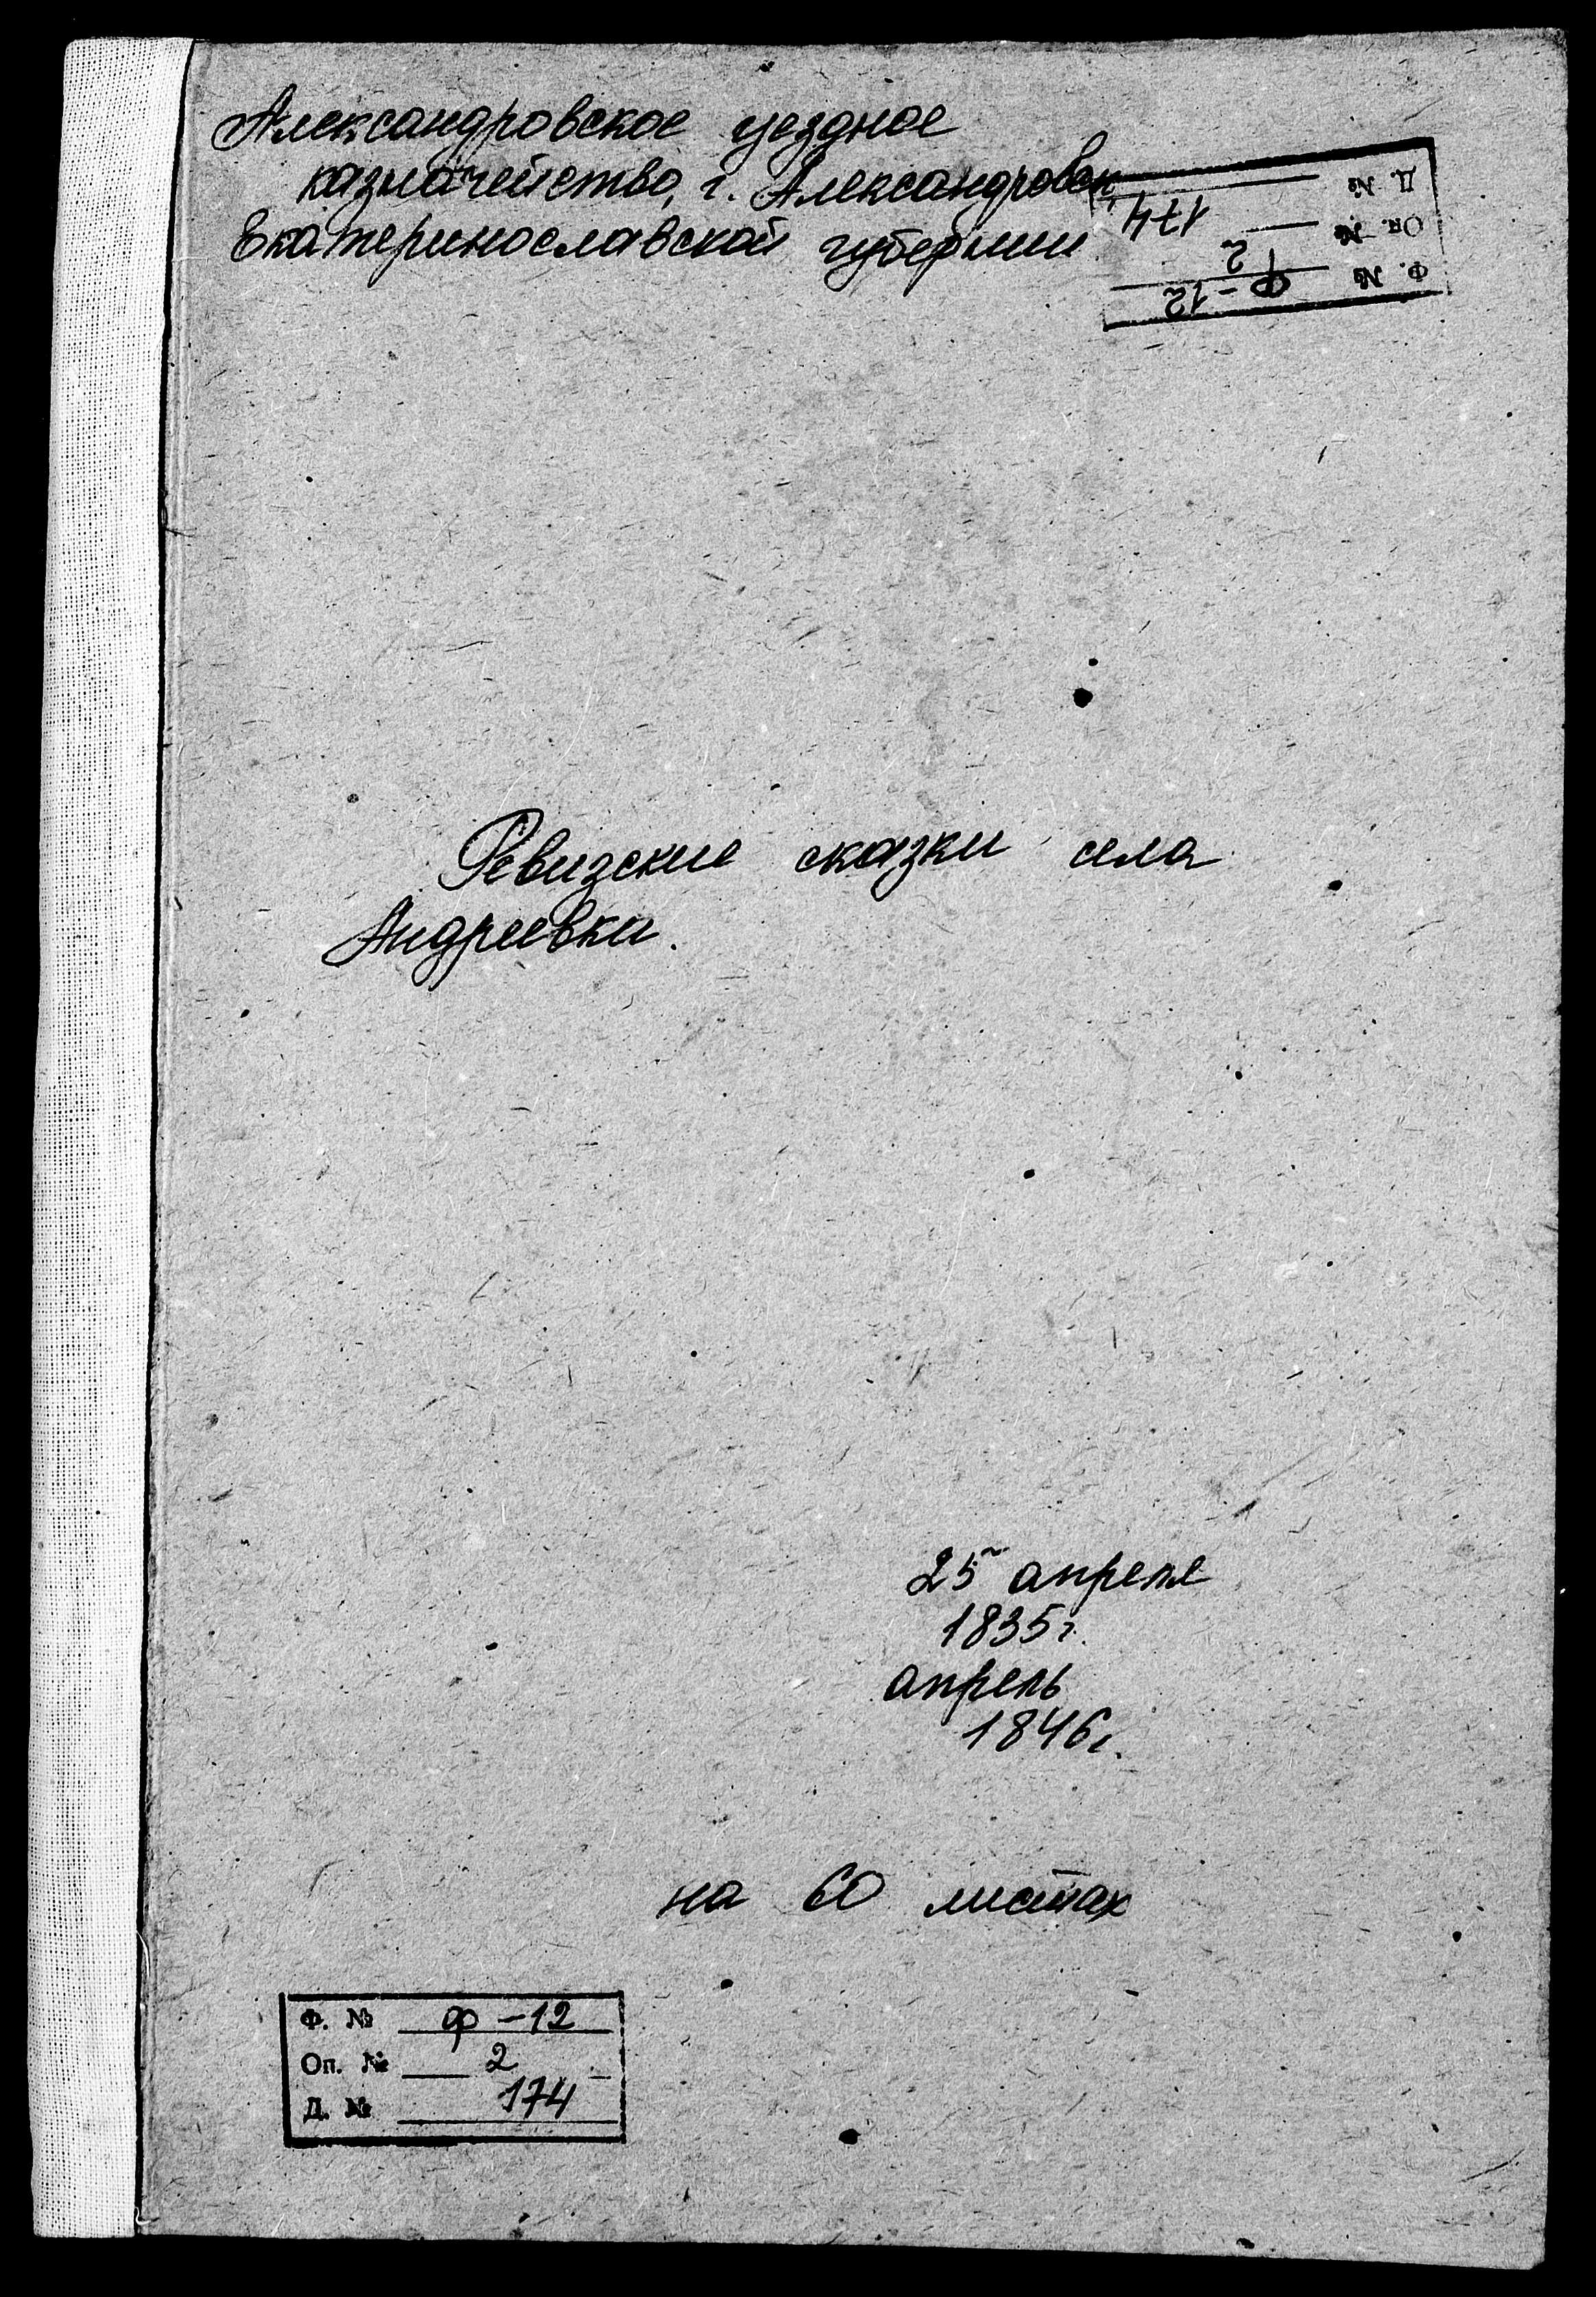 Александровское уездное
казначейство, г. Александровск
Екатеринославской губернии
Ф. № Ф-12
Оп. № 2
Д. № 174
Ревизские сказки села
Андреевки.
25 апреля
1835г.
апрель
1846г.
на 60 листах
Ф. № Ф-12
Оп. № 2
Д. № 174